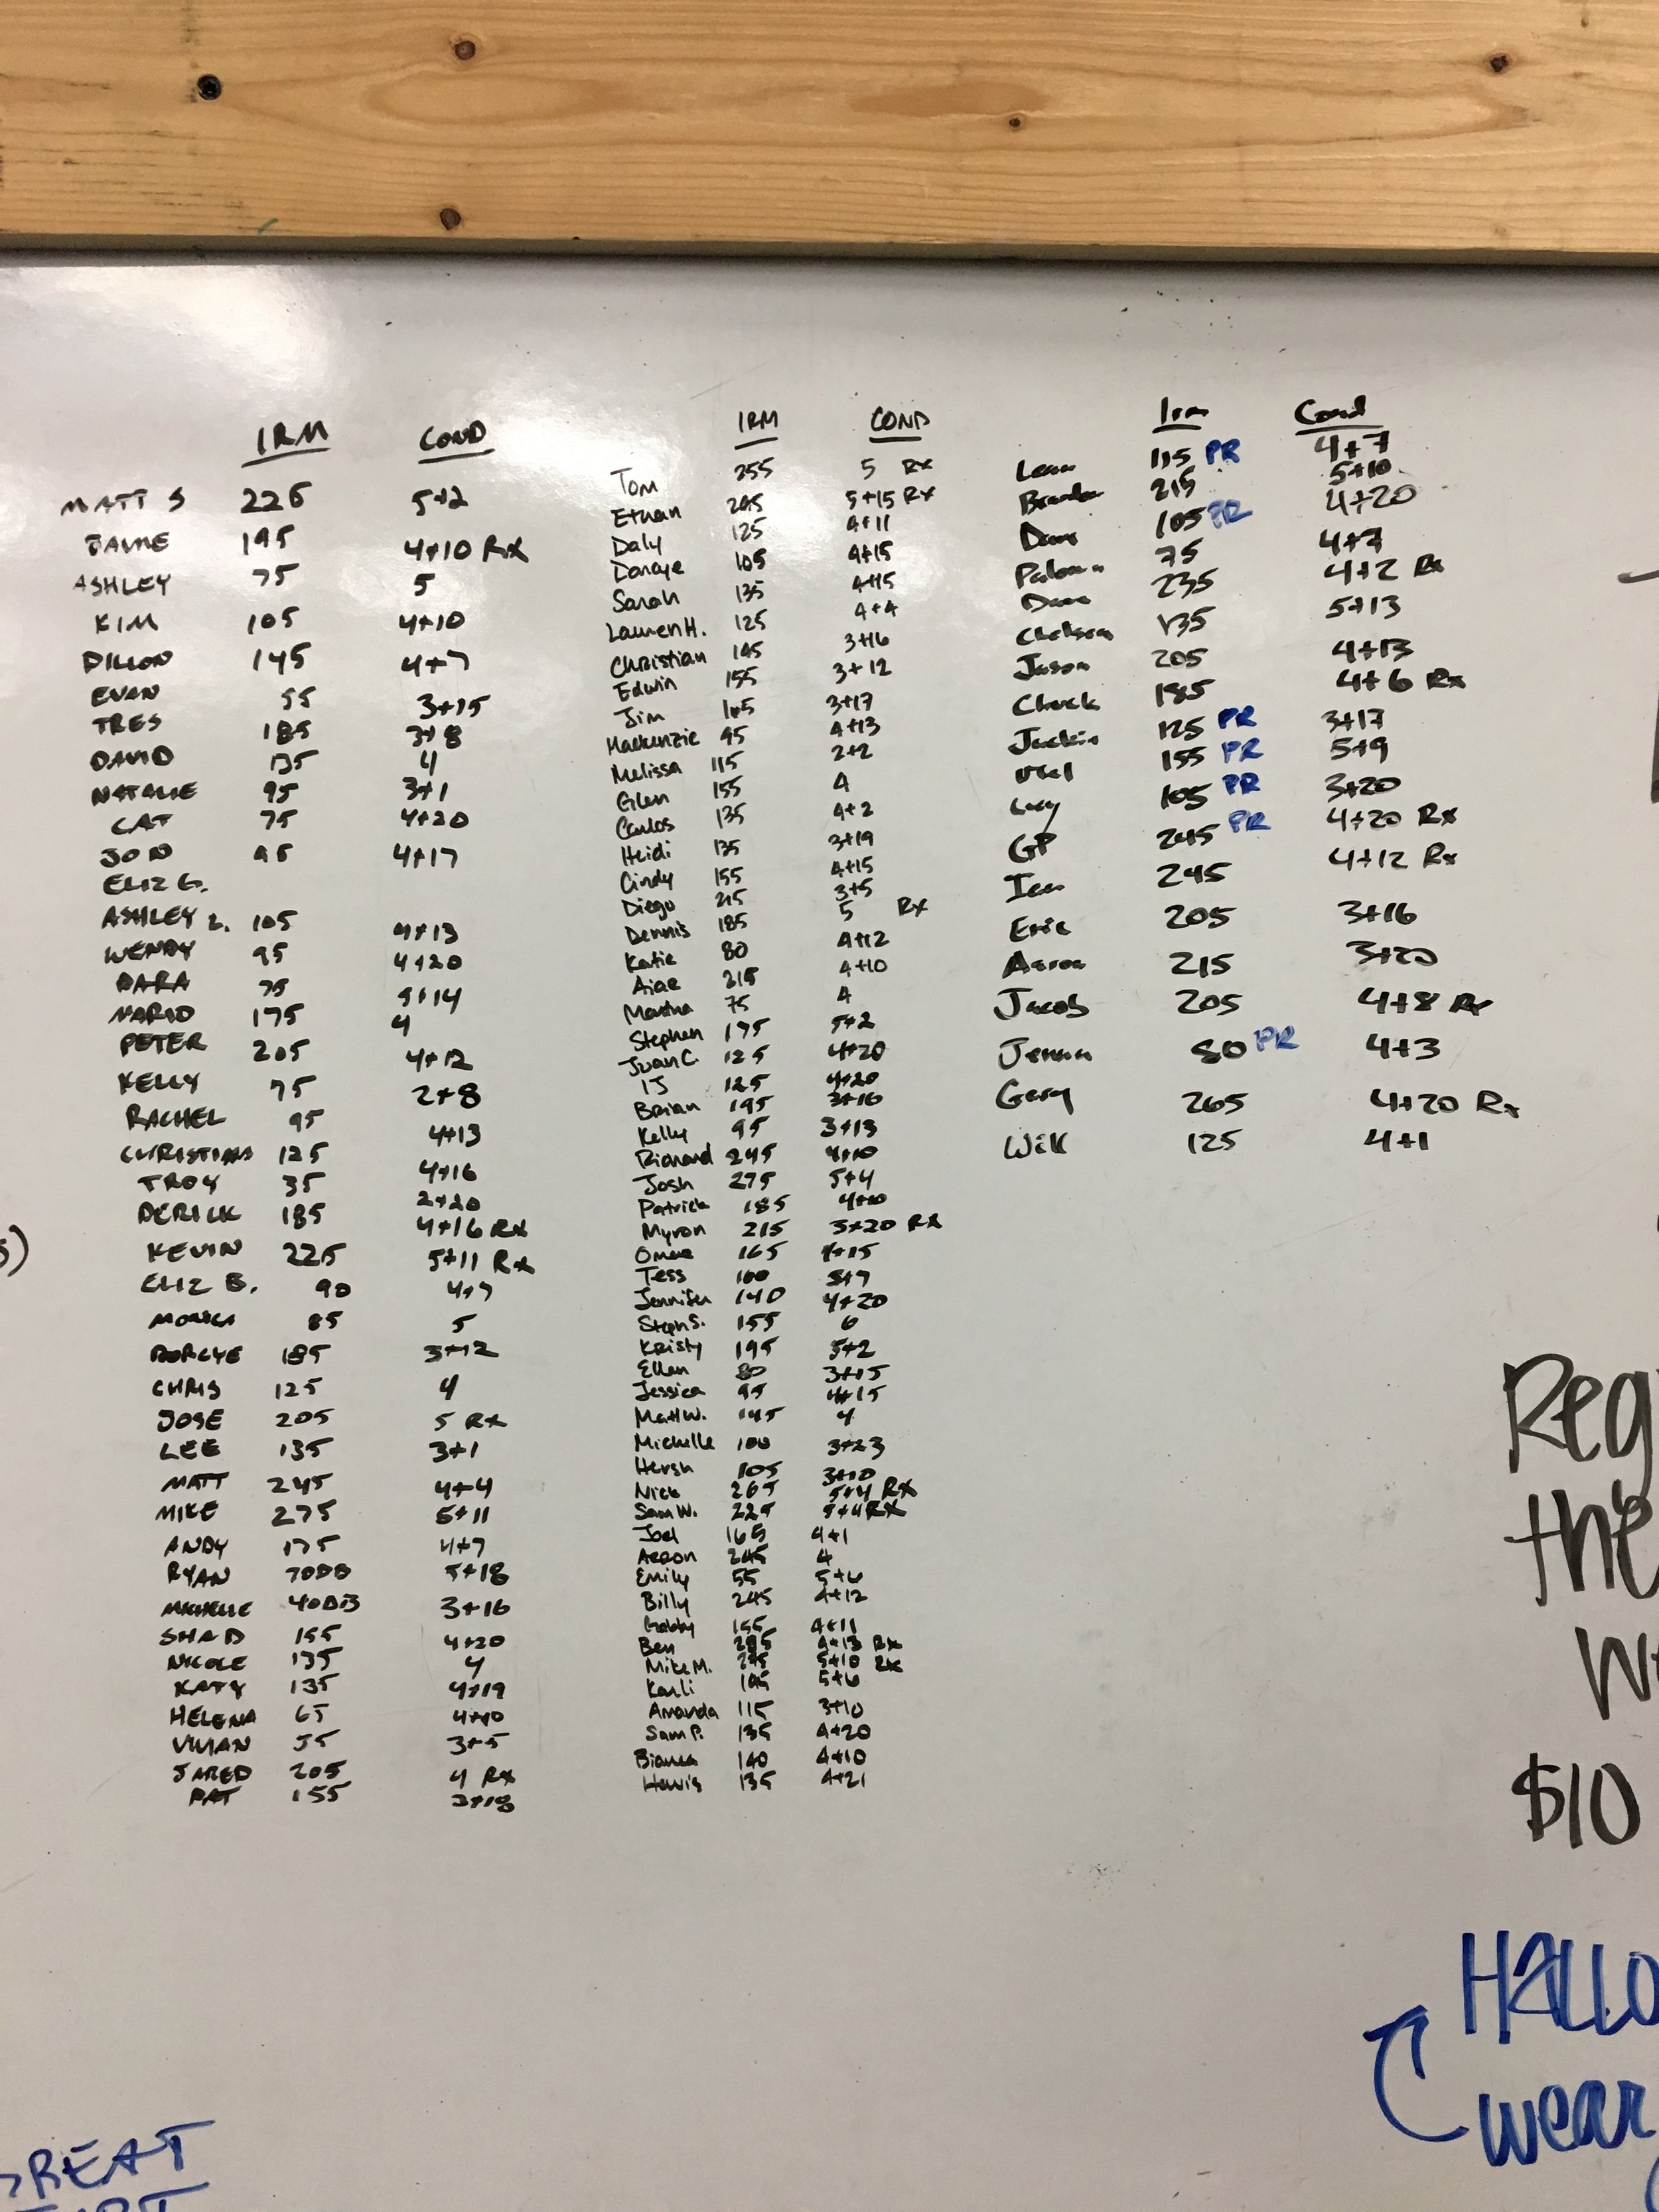 1RM COND
MATT S 225 5+2
JAIME 195 4+10 RX
ASHLEY 75 5
KIM 105 4+10
DILLON 145 4+7
EVAN 55 3+15
TRES 185 3+8
DAVID 135 4
NATALIE 95 3+1
CAT 75 4+20
JON 95 4+17
ELIZ G.
ASHLEY 2. 105 4+13
WENDY 95 4+20
DARA 75 5+14
MARIO 175 4
PETER 205 4+12
KELLY 75 2+8
RACHEL 95 4+13
CHRISTIAN 125 4+16
TROY 35 2+20
DERICK 185 4+16 RX
KEVIN 225 5+11 RX
ELIZ B. 90 4+7
MONICA 85 5
185 3+12
CHRIS 125 4
JOSE 205 5 RX
LEE 135 3+1
MATT 245 4+4
MIKE 275 5+11
ANDY 175 4+7
RYAN 70DB 5+18
MICHELLE 40DB 3+16
SHAD 155 4+20
NICOLE 135 4
KATY 135 4+19
HELENA 65 4+10
VIVIAN 55 3+5
JARED 205 4 RX
PAT 155 3+18
1RM COND
Tom 255 5 RX
Ethan 205 5+15 RX
Daly 125 4+11
Danaye 105 4+15
Sarah 135 4+15
Lauren H. 125 4+4
Christian 145 3+16
Edwin 155 3+12
Jim 165 3+17
Mackenzie 95 4+13
Melissa 115 2+2
Glen 155 4
Carlos 135 4+2
Heidi 135 3+19
Cindy 155 4+15
Diego 215 3+5
Dennis 185 5 RX
Katie 80 4+12
215 4+10
Martha 75 4
Stephen 175 5+2
Juan C. 125 4+20
TJ 125 4+20
Brian 195 3+16
Kelly 95 3+13
Richard 245 4+10
Josh 275 5+4
Patrick 185 4+10
Myron 215 3+20 RX
Omar 165 4+15
Tess 100 3+7
Jennifer 140 4+20
Steph S. 155 6
Kristy 195 5+2
Ellen 80 3+15
Jessica 95 4+15
Matt W. 145 4
Michelle 100 3+23
Hersh 105 3+10
Nick 265 5+4 RX
Sam W. 225 5+4 RX
Joel 165 4+1
Aaron 245 4
Emily 55 5+6
Billy 245 4+12
Gabby 155 4+11
Ben 285 4+13 RX
Mike M. 275 5+10 RX
Karli 105 5+6
Amanda 115 3+10
Sam P. 135 4+20
Bianca 140 4+10
135 4+21
1rm Cond
Leon 115 PR 4+7
Brandon 215 5+10
105 PR 4+20
Paloma 75 4+7
Dave 235 4+2 Rx
Chelsea 135 5+13
Jason 205 4+13
Chuck 185 4+6 Rx
Jackie 125 PR 3+17
155 PR 5+9
Lucy 105 PR 3+20
GP 245 PR 4+20 Rx
Ian 245 4+12 Rx
Eric 205 3+16
Aaron 215 3+20
Jacob 205 4+8 Rx
Jenna 80 PR 4+3
Gary 265 4+20 Rx
Will 125 4+1
Reg
the
$10
HALLO
wear